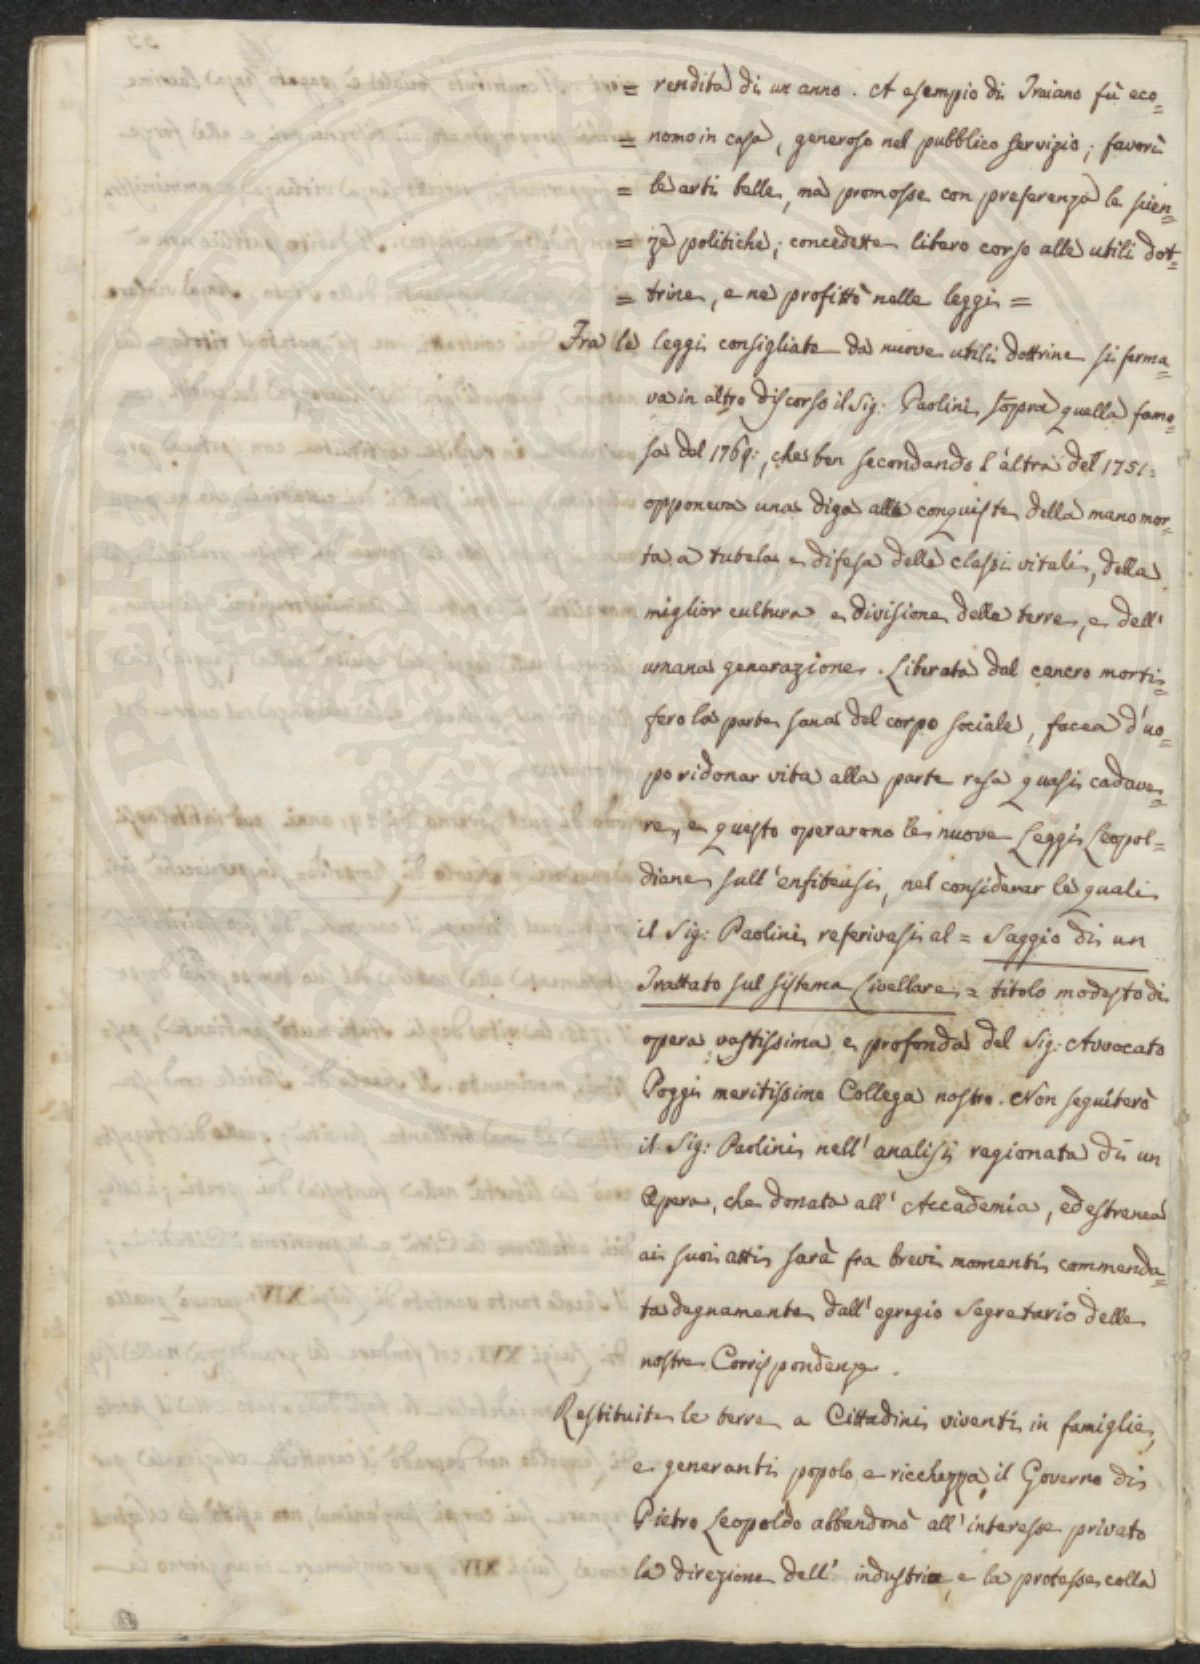 = rendita di un anno. A esempio di Traiano fù eco=
= nomo in casa, generoso nel pubblico servizio; favorì
= le arti belle, ma promosse con preferenza le scien=
= ze politiche; concedette libero corso alle utili dot=
= trine, e ne profittò nelle leggi =
Fra le leggi consigliate da nuove utili dottrine si ferma=
va in altro discorso il Sig: Paolini sopra quella famo=
sa del 1769:, che ben secondando l'altra del 1751=
opponeva una diga alle conquiste della mano mor=
ta a tutela e difesa delle classi vitali, della
miglior cultura e divisione delle terre, e dell'
umana generazione. Liberata dal cancro morti=
fero la parte sana del corpo sociale, facea d'uo=
po ridonar vita alla parte resa quasi cadave=
re, e questo operarono le nuove Leggi Leopol=
diane sull'enfiteusi, nel considerar le quali
il Sig: Paolini referivasi al = Saggio di un
Trattato sul sistema Livellare = titolo modesto di
opera vastissima e profonda del Sig: Avvocato
Poggi meritissimo Collega nostro. Non seguiterò
il Sig: Paolini nell'analisi ragionata di un
Opera, che donata all'Accademia, ed estranea
ai suoi atti sarà fra brevi momenti commenda=
ta degnamente dall'egregio Segretario delle
nostre Corrispondenze.
Restituite le terre a Cittadini viventi in famiglie,
e generanti popolo e ricchezza, il Governo di
Pietro Leopoldo abbandonò all'interesse privato
la direzione dell'industria e la protesse colla